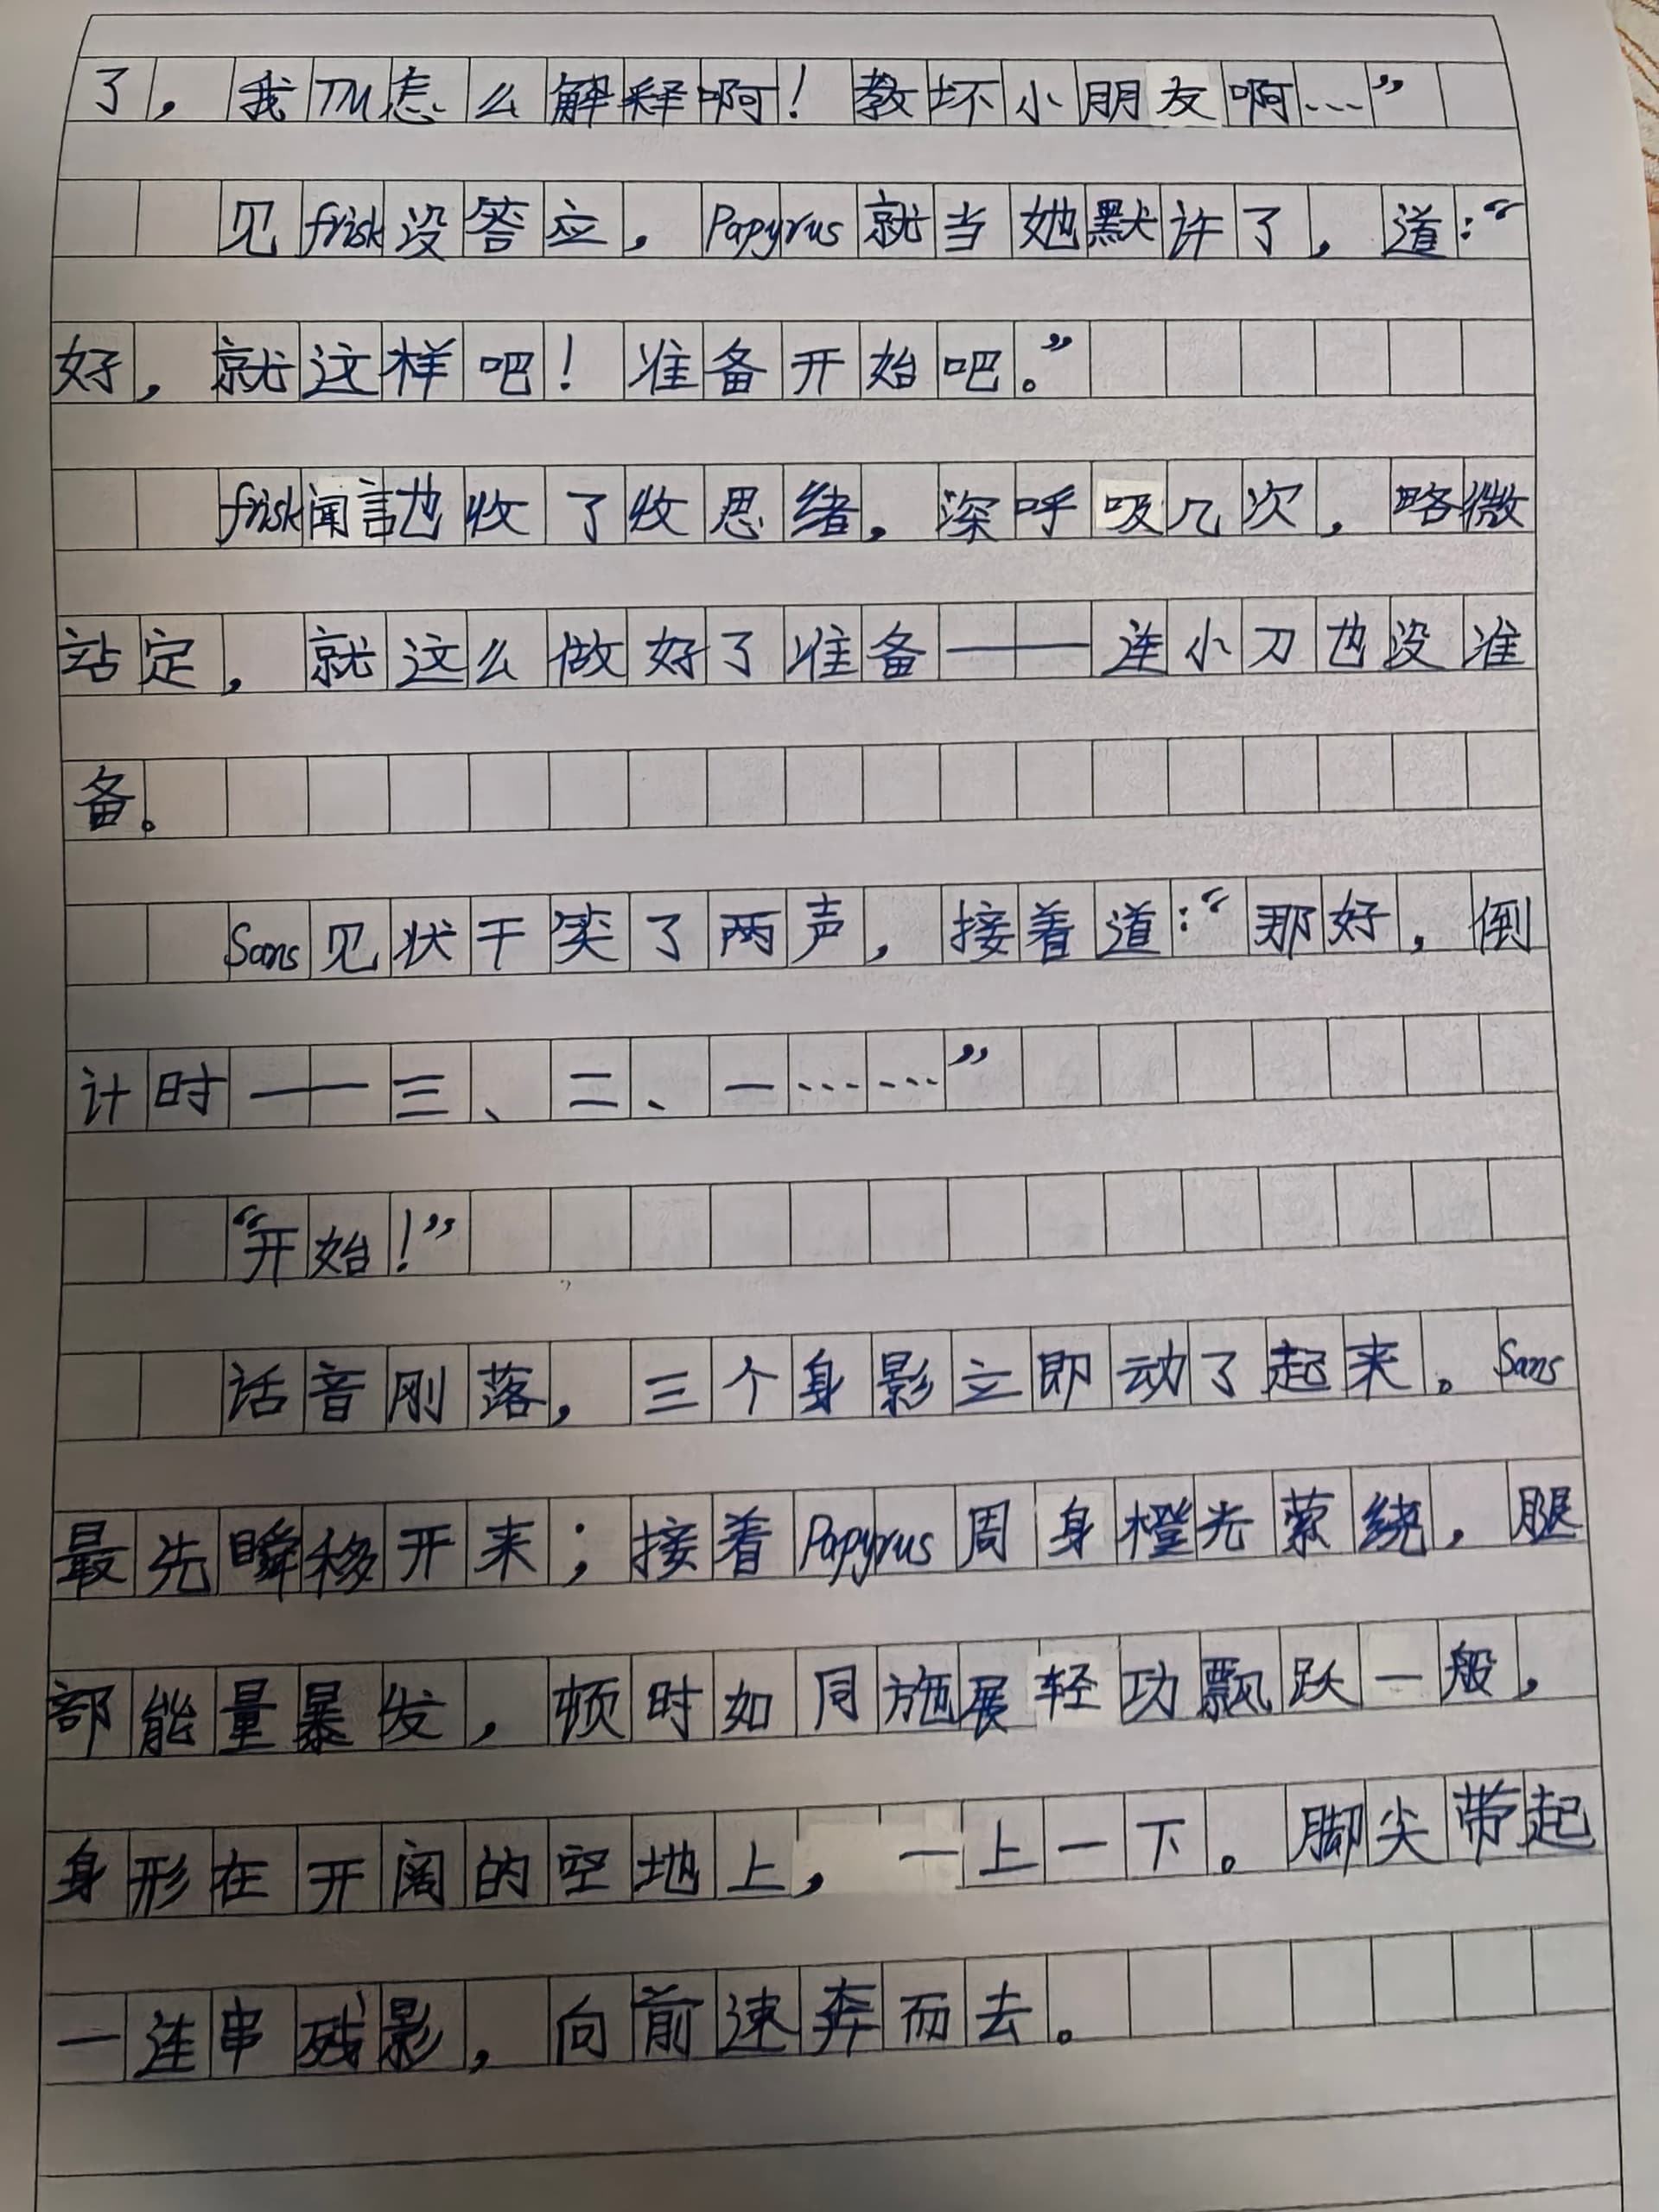 了，我TM怎么解释啊！教坏小朋友啊…”
见frisk没答应，Papyrus就当她默许了，道：“
好，就这样吧！准备开始吧。”
frisk闻言也收了收思绪，深呼吸几次，略微
站定，就这么做好了准备——连小刀也没准
备。
Sans见状干笑了两声，接着道：“那好，倒
计时——三、二、一……”
“开始！”
话音刚落，三个身影立即动了起来。Sans
最先瞬移开来；接着Papyrus周身橙光萦绕，腿
部能量暴发，顿时如同施展轻功飘跃一般，
身形在开阔的空地上，一上一下。脚尖带起
一连串残影，向前速奔而去。